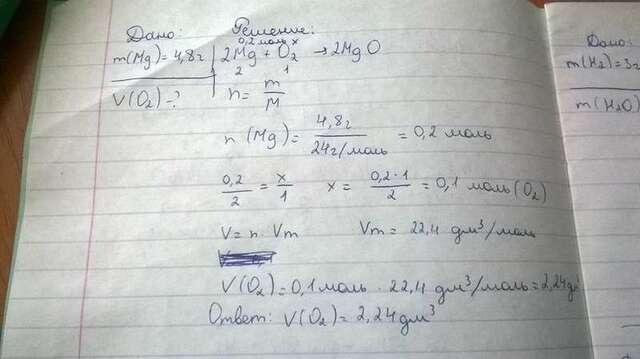 Дано: Решение:
0,2 моль x
m(Mg) = 4,8г 2Mg + O₂ → 2MgO
2 1
V(O₂) = ? n = m/M
n(Mg) = 4,8г/24г/моль = 0,2 моль
0,2/2 = x/1 x = 0,2·1/2 = 0,1 моль (O₂)
V = n · Vm Vm = 22,4 дм³/моль
V(O₂) = 0,1 моль · 22,4 дм³/моль = 2,24 дм³
Ответ: V(O₂) = 2,24 дм³
Дано:
m(H₂) = 3г
m(H₂O)